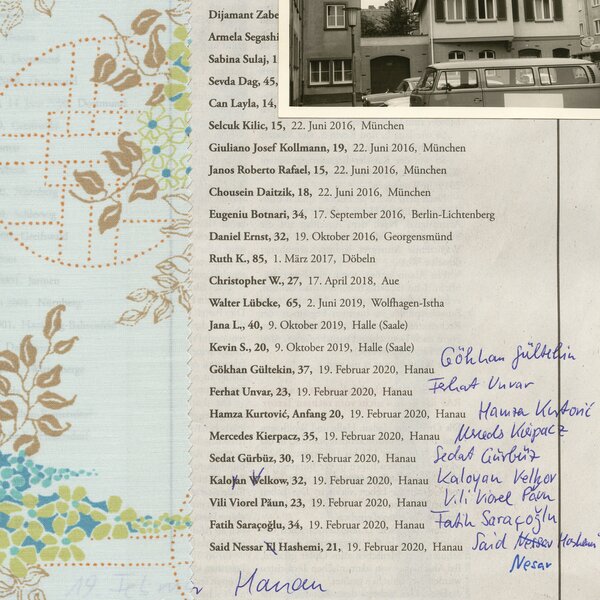 Dijamant Zabe
Armela Segashi
Sabina Sulaj, 1
Sevda Dag, 45,
Can Leyla, 14,
Selcuk Kilic, 15, 22. Juni 2016, München
Giuliano Josef Kollmann, 19, 22. Juni 2016, München
Janos Roberto Rafael, 15, 22. Juni 2016, München
Chousein Daitzik, 18, 22. Juni 2016, München
Eugeniu Botnari, 34, 17. September 2016, Berlin-Lichtenberg
Daniel Ernst, 32, 19. Oktober 2016, Georgensmünd
Ruth K., 85, 1. März 2017, Döbeln
Christopher W., 27, 17. April 2018, Aue
Walter Lübcke, 65, 2. Juni 2019, Wolfhagen-Istha
Jana L., 40, 9. Oktober 2019, Halle (Saale)
Kevin S., 20, 9. Oktober 2019, Halle (Saale)
Gökhan Gültekin, 37, 19. Februar 2020, Hanau Gökhan Gültekin
Ferhat Unvar, 23, 19. Februar 2020, Hanau Ferhat Unvar
Hamza Kurtović, Anfang 20, 19. Februar 2020, Hanau Hamza Kurtović
Mercedes Kierpacz, 35, 19. Februar 2020, Hanau Mercedes Kierpacz
Sedat Gürbüz, 30, 19. Februar 2020, Hanau Sedat Gürbüz
Kalojan Welkow, 32, 19. Februar 2020, Hanau Kaloyan Velkov
Vili Viorel Păun, 23, 19. Februar 2020, Hanau Vili Viorel Păun
Fatih Saraçoğlu, 34, 19. Februar 2020, Hanau Fatih Saraçoğlu
Said Nessar El Hashemi, 21, 19. Februar 2020, Hanau Said Nessar Hashemi
Nesar
19 Februar Hanau